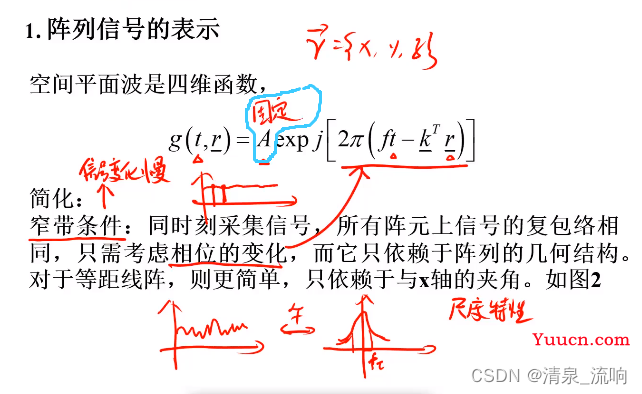 1. 阵列信号的表示
r⃗={x, y, z}
空间平面波是四维函数，
固定
g(t,r) = A exp j[2π(ft − k^T r)]
信号变化慢
简化：
窄带条件：同时刻采集信号，所有阵元上信号的复包络相
同，只需考虑相位的变化，而它只依赖于阵列的几何结构。
对于等距线阵，则更简单，只依赖于与x轴的夹角。如图2
尺度特性
Yuucn.com
CSDN @清泉_流响